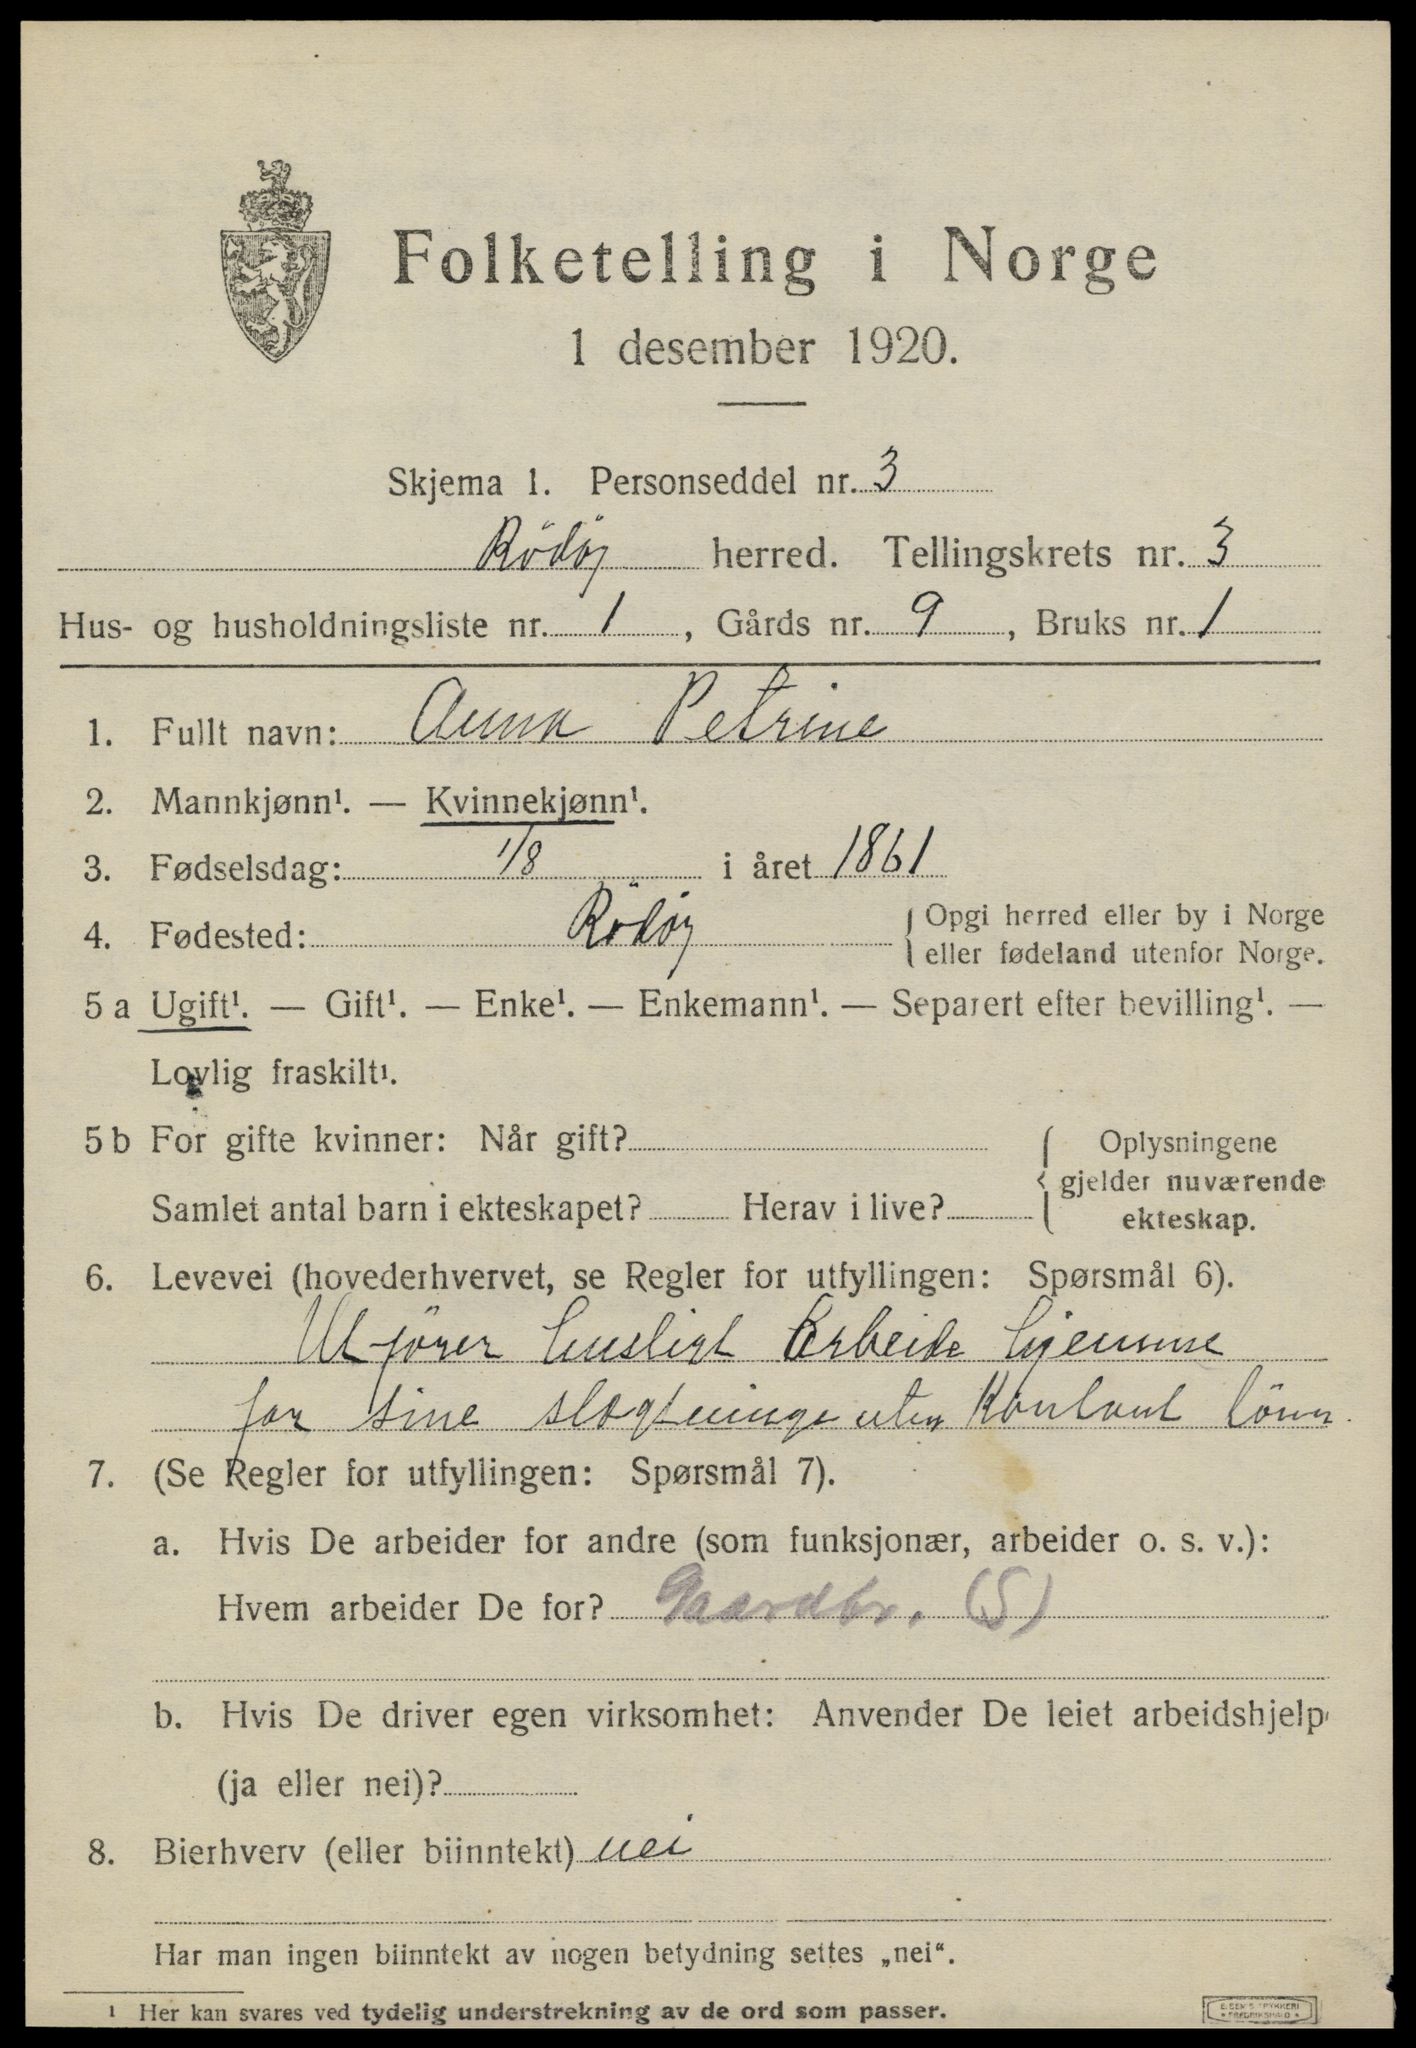 Folketelling i Norge
1 desember 1920.
Skjema 1. Personseddel nr. 3
Rödöy herred. Tellingskrets nr. 3
Hus- og husholdningsliste nr. 1, Gårds nr. 9, Bruks nr. 1
1. Fullt navn: Anna Petrine
2. Mannkjønn¹. — Kvinnekjønn¹.
3. Fødselsdag: 1/8 i året 1861
4. Fødested: Rödöy { Opgi herred eller by i Norge
eller fødeland utenfor Norge.
5 a Ugift¹. — Gift¹. — Enke¹. — Enkemann¹. — Separert efter bevilling¹. —
Lovlig fraskilt¹.
5 b For gifte kvinner: Når gift? { Oplysningene
gjelder nuværende
ekteskap.
Samlet antal barn i ekteskapet? Herav i live?
6. Levevei (hovederhvervet, se Regler for utfyllingen: Spørsmål 6).
Utfører husligt Arbeide hjemme
for sine slægtninge uten Kontant lönn
7. (Se Regler for utfyllingen: Spørsmål 7).
a. Hvis De arbeider for andre (som funksjonær, arbeider o. s. v.):
Hvem arbeider De for? Gaardbr. (S)
b. Hvis De driver egen virksomhet: Anvender De leiet arbeidshjelp
(ja eller nei)?
8. Bierhverv (eller biinntekt) nei
Har man ingen biinntekt av nogen betydning settes „nei“.
¹ Her kan svares ved tydelig understrekning av de ord som passer.